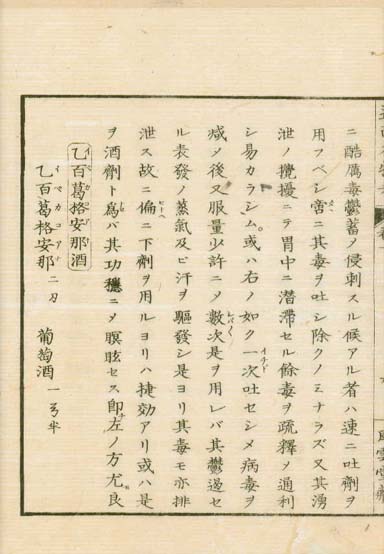 ニ酷厲毒鬱蓄ノ侵刺スル候アル者ハ速ニ吐劑ヲ
用フベシ啻ニ其毒ヲ吐シ除クノミナラズ又其湧
泄ノ攪擾ニテ胃中ニ潛滯セル餘毒ヲ疏釋〆通利
シ易カラシム。或ハ右ノ如ク一次吐セシメ病毒ヲ
減〆後又服量少許ニ〆數次是ヲ用レバ其鬱遏セ
ル表發ノ蒸氣及ヒ汗ヲ驅發シ是ヨリ其毒モ亦排
泄ス故ニ偏ニ下劑ヲ用ルヨリハ捷効アリ或ハ是
ヲ酒劑ト爲バ其功穩ニ〆瞑眩セス即左ノ方尤良
乙百葛格安那酒
乙百葛格安那 二 葡萄酒 一 半